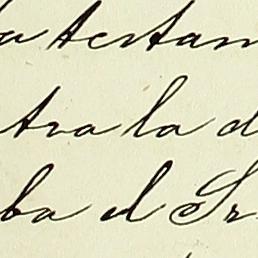 la testam
tra la d
ba el Sr